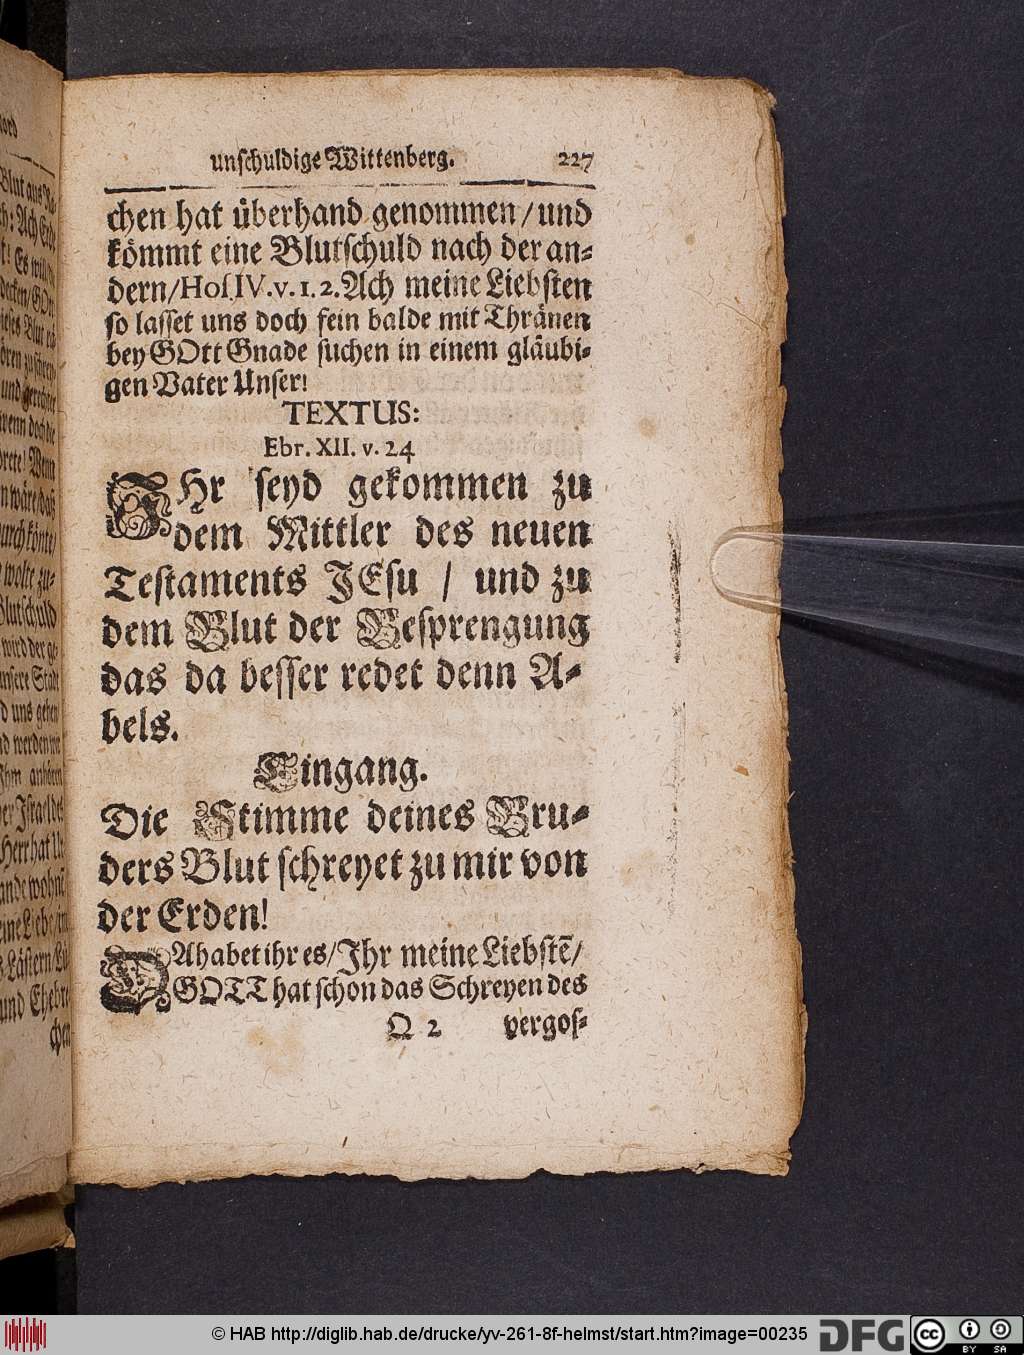 unschuldige Wittenberg. 227
chen hat überhand genommen/und
kömmt eine Blutschuld nach der an-
dern/Hos.IV.v.1.2.Ach meine Liebsten
so lasset uns doch fein balde mit Thränen
bey GOtt Gnade suchen in einem gläubi-
gen Vater Unser!
TEXTUS:
Ebr. XII. v. 24
IHr seyd gekommen zu
dem Mittler des neuen
Testaments JEsu / und zu
dem Blut der Besprengung
das da besser redet denn A-
bels.
Eingang.
Die Stimme deines Bru-
ders Blut schreyet zu mir von
der Erden!
DAhabet ihr es/Ihr meine Liebstẽ/
GOTT hat schon das Schreyen des
Q 2 vergos-
© HAB http://diglib.hab.de/drucke/yv-261-8f-helmst/start.htm?image=00235 DFG cc BY SA